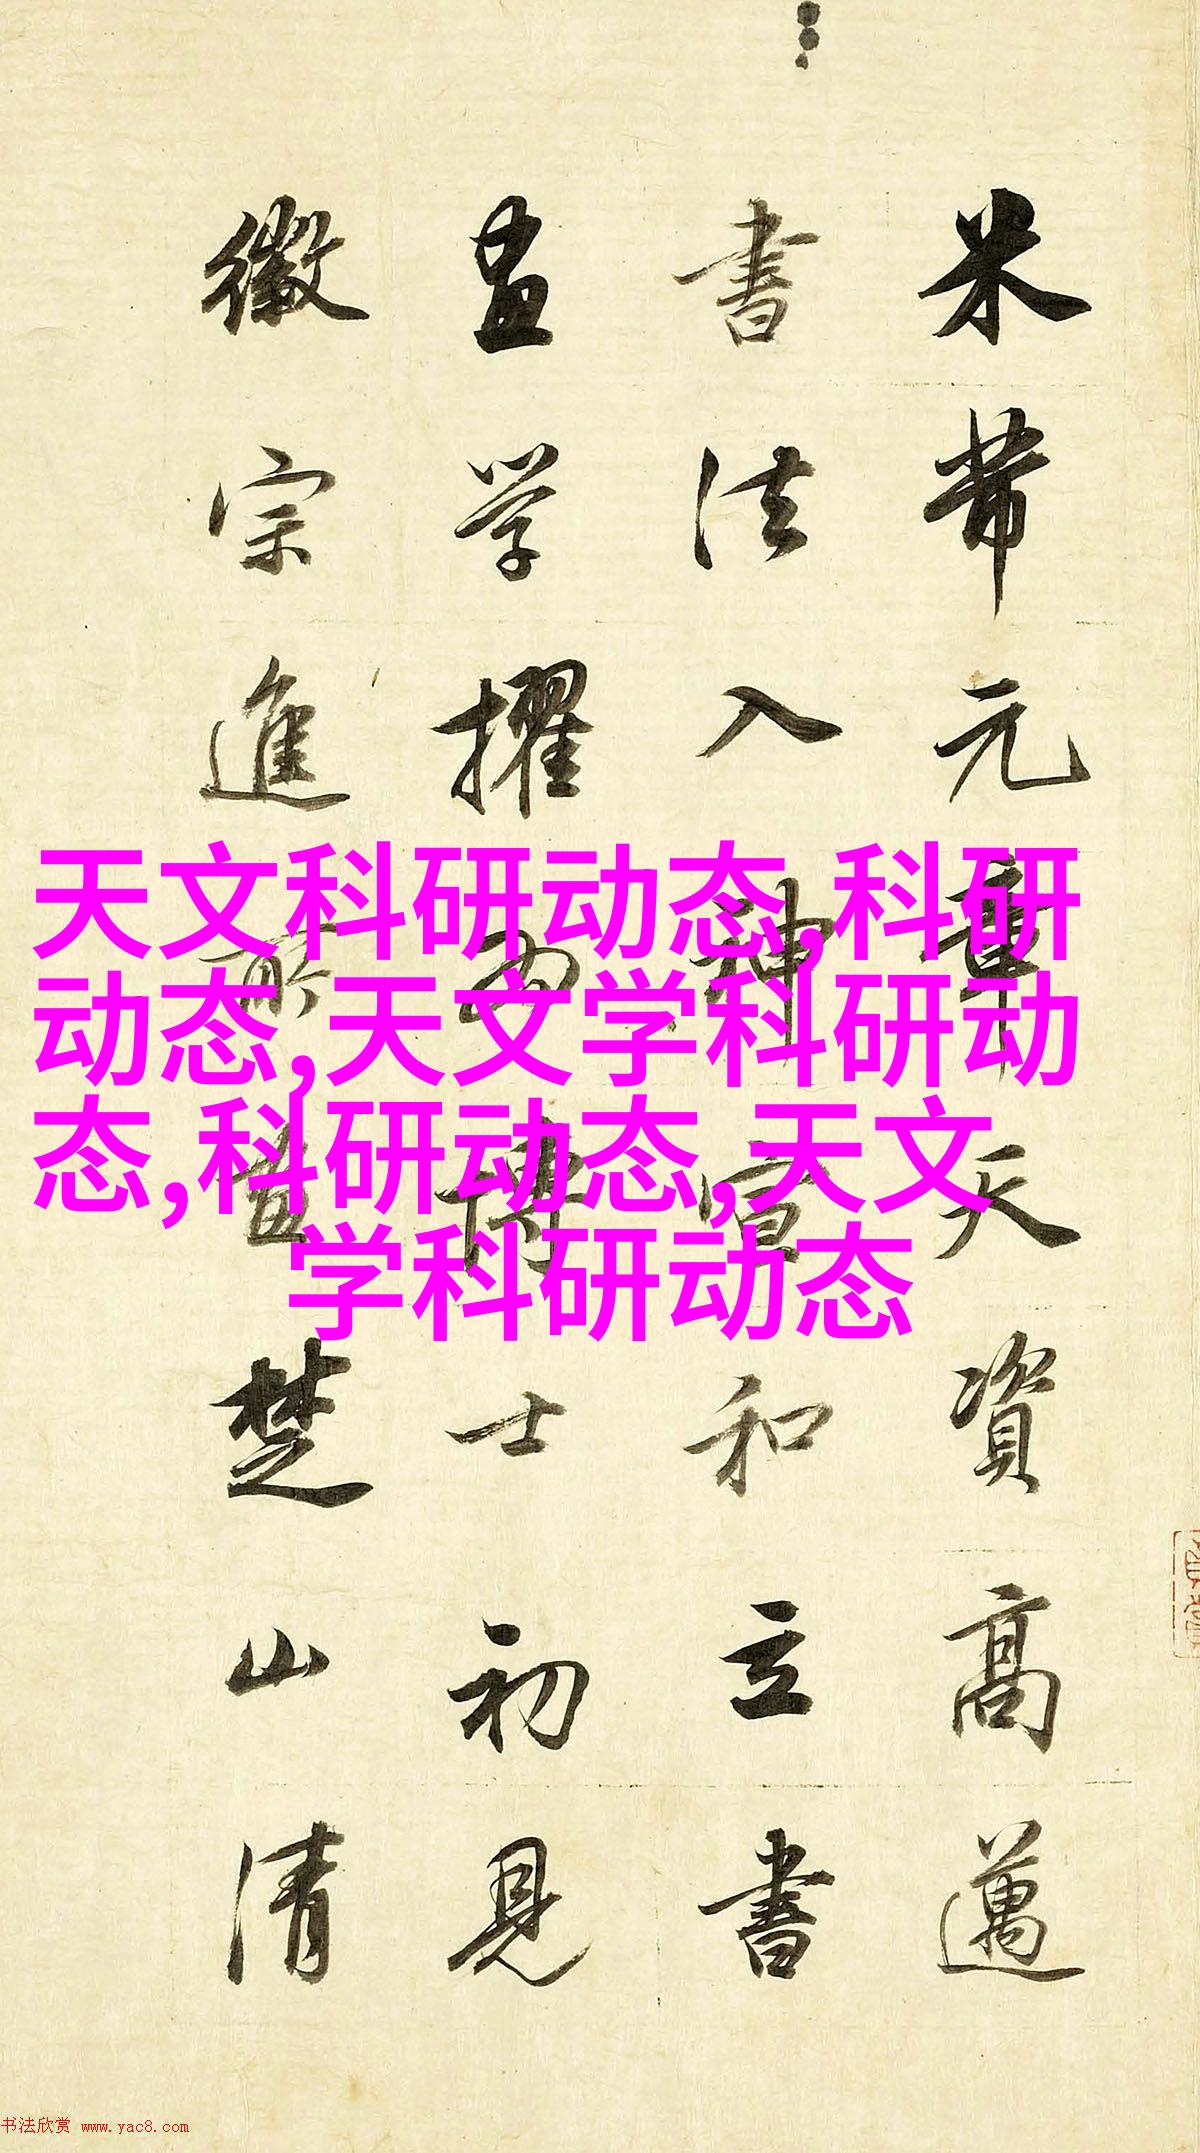 米芾元章天資高邁
書法入神宣和立書
畫學擢為博士初見
徽宗進所畫楚山清
天文科研动态,科研
动态,天文学科研动
态,科研动态,天文
学科研动态
书法欣赏 www.yac8.com